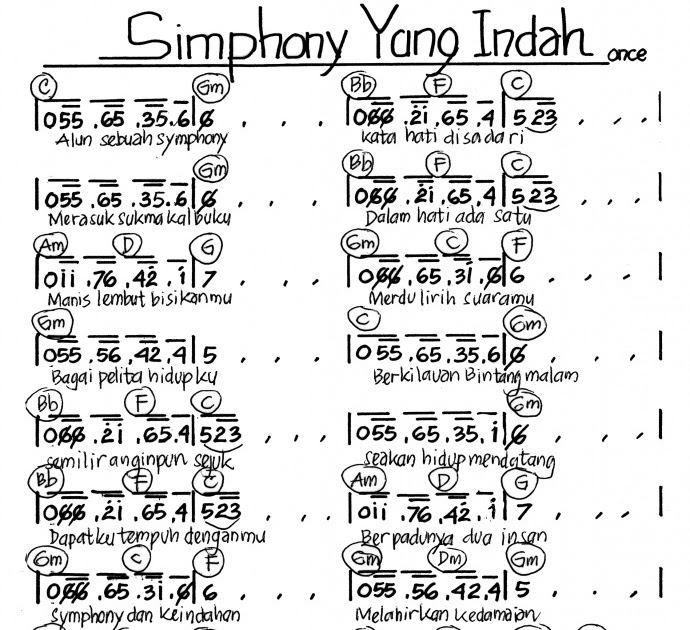 Simphony Yang Indah once
C Gm Bb F C
055 .65 .35.6 6 . . . 066 .2i .65 .4 523 . . .
Alun sebuah symphony kata hati disadari
Gm Bb F C
055 .65 .35.6 6 . . . 066 .2i .65.4 523 . . .
Merasuk sukma kalbuku Dalam hati ada satu
Am D G Gm C F
0ii .76 .42 .i 7 . . . 066 .65 .3i .6 6 . . .
Manis lembut bisikanmu Merdu lirih suaramu
Gm C Gm
055 .56 .42.4 5 . . . 055 .65 .35.6 6 . . .
Bagai pelita hidupku Berkilauan Bintang malam
Bb F C Gm
066 .2i .65.4 523 . . . 055 .65 .35 .i 6 . . .
semilir anginpun sejuk seakan hidup mendatang
Bb F C Am D G
066 .2i .65.4 523 . . . 0ii .76 .42 .i 7 . . .
Dapatku tempuh denganmu Berpadunya dua insan
Gm C F Gm Dm Gm
066 .65 .3i .6 6 . . . 055 .56 .42.4 5 . . .
Symphony dan keindahan Melahirkan kedamaian